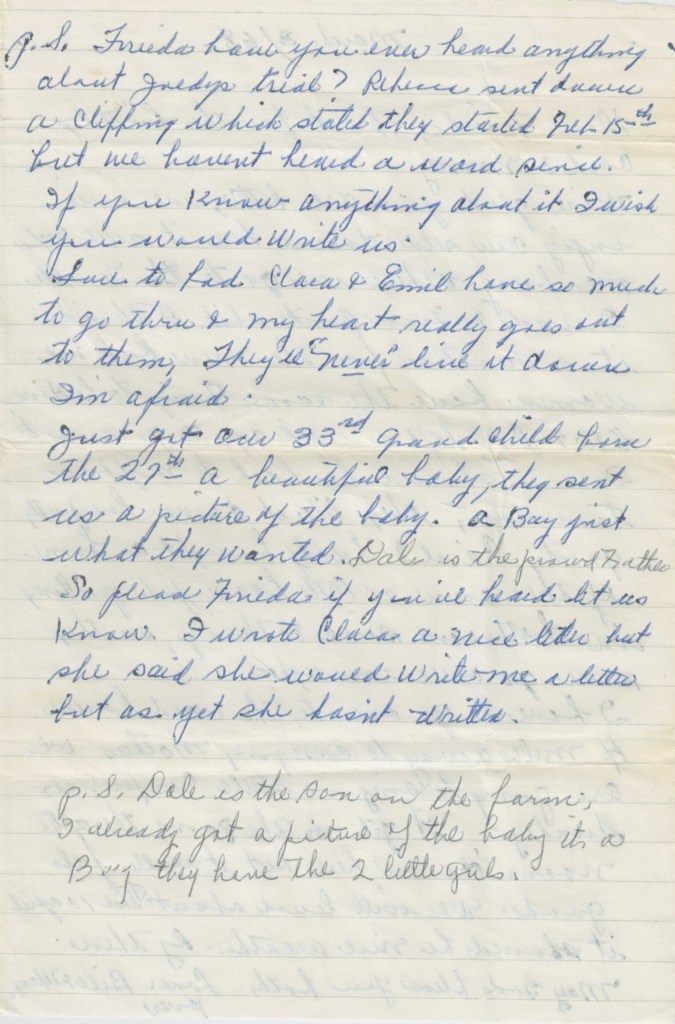 p.S. Frieda have you ever heard anything
about Joedys trial? Rebecca sent down
a clipping which stated they started Feb 15th
but we havent heard a word since.
If you Know anything about it I wish
you would Write us.
Sure to bad Clara & Emil have so much
to go thru & my heart really goes out
to them, They'll "never" live it down
I'm afraid.
Just got our 33rd grand child born
the 27th a beautiful baby, they sent
us a picture of the baby. a Boy just
what they wanted. Dale is the proud Father
So please Frieda if you've heard let us
Know. I wrote Clara a nice letter but
she said she would Write me a letter
but as yet she hasn't written.
p.S. Dale is the son on the farm,
I already got a picture of the baby its a
Boy they have the 2 little girls.